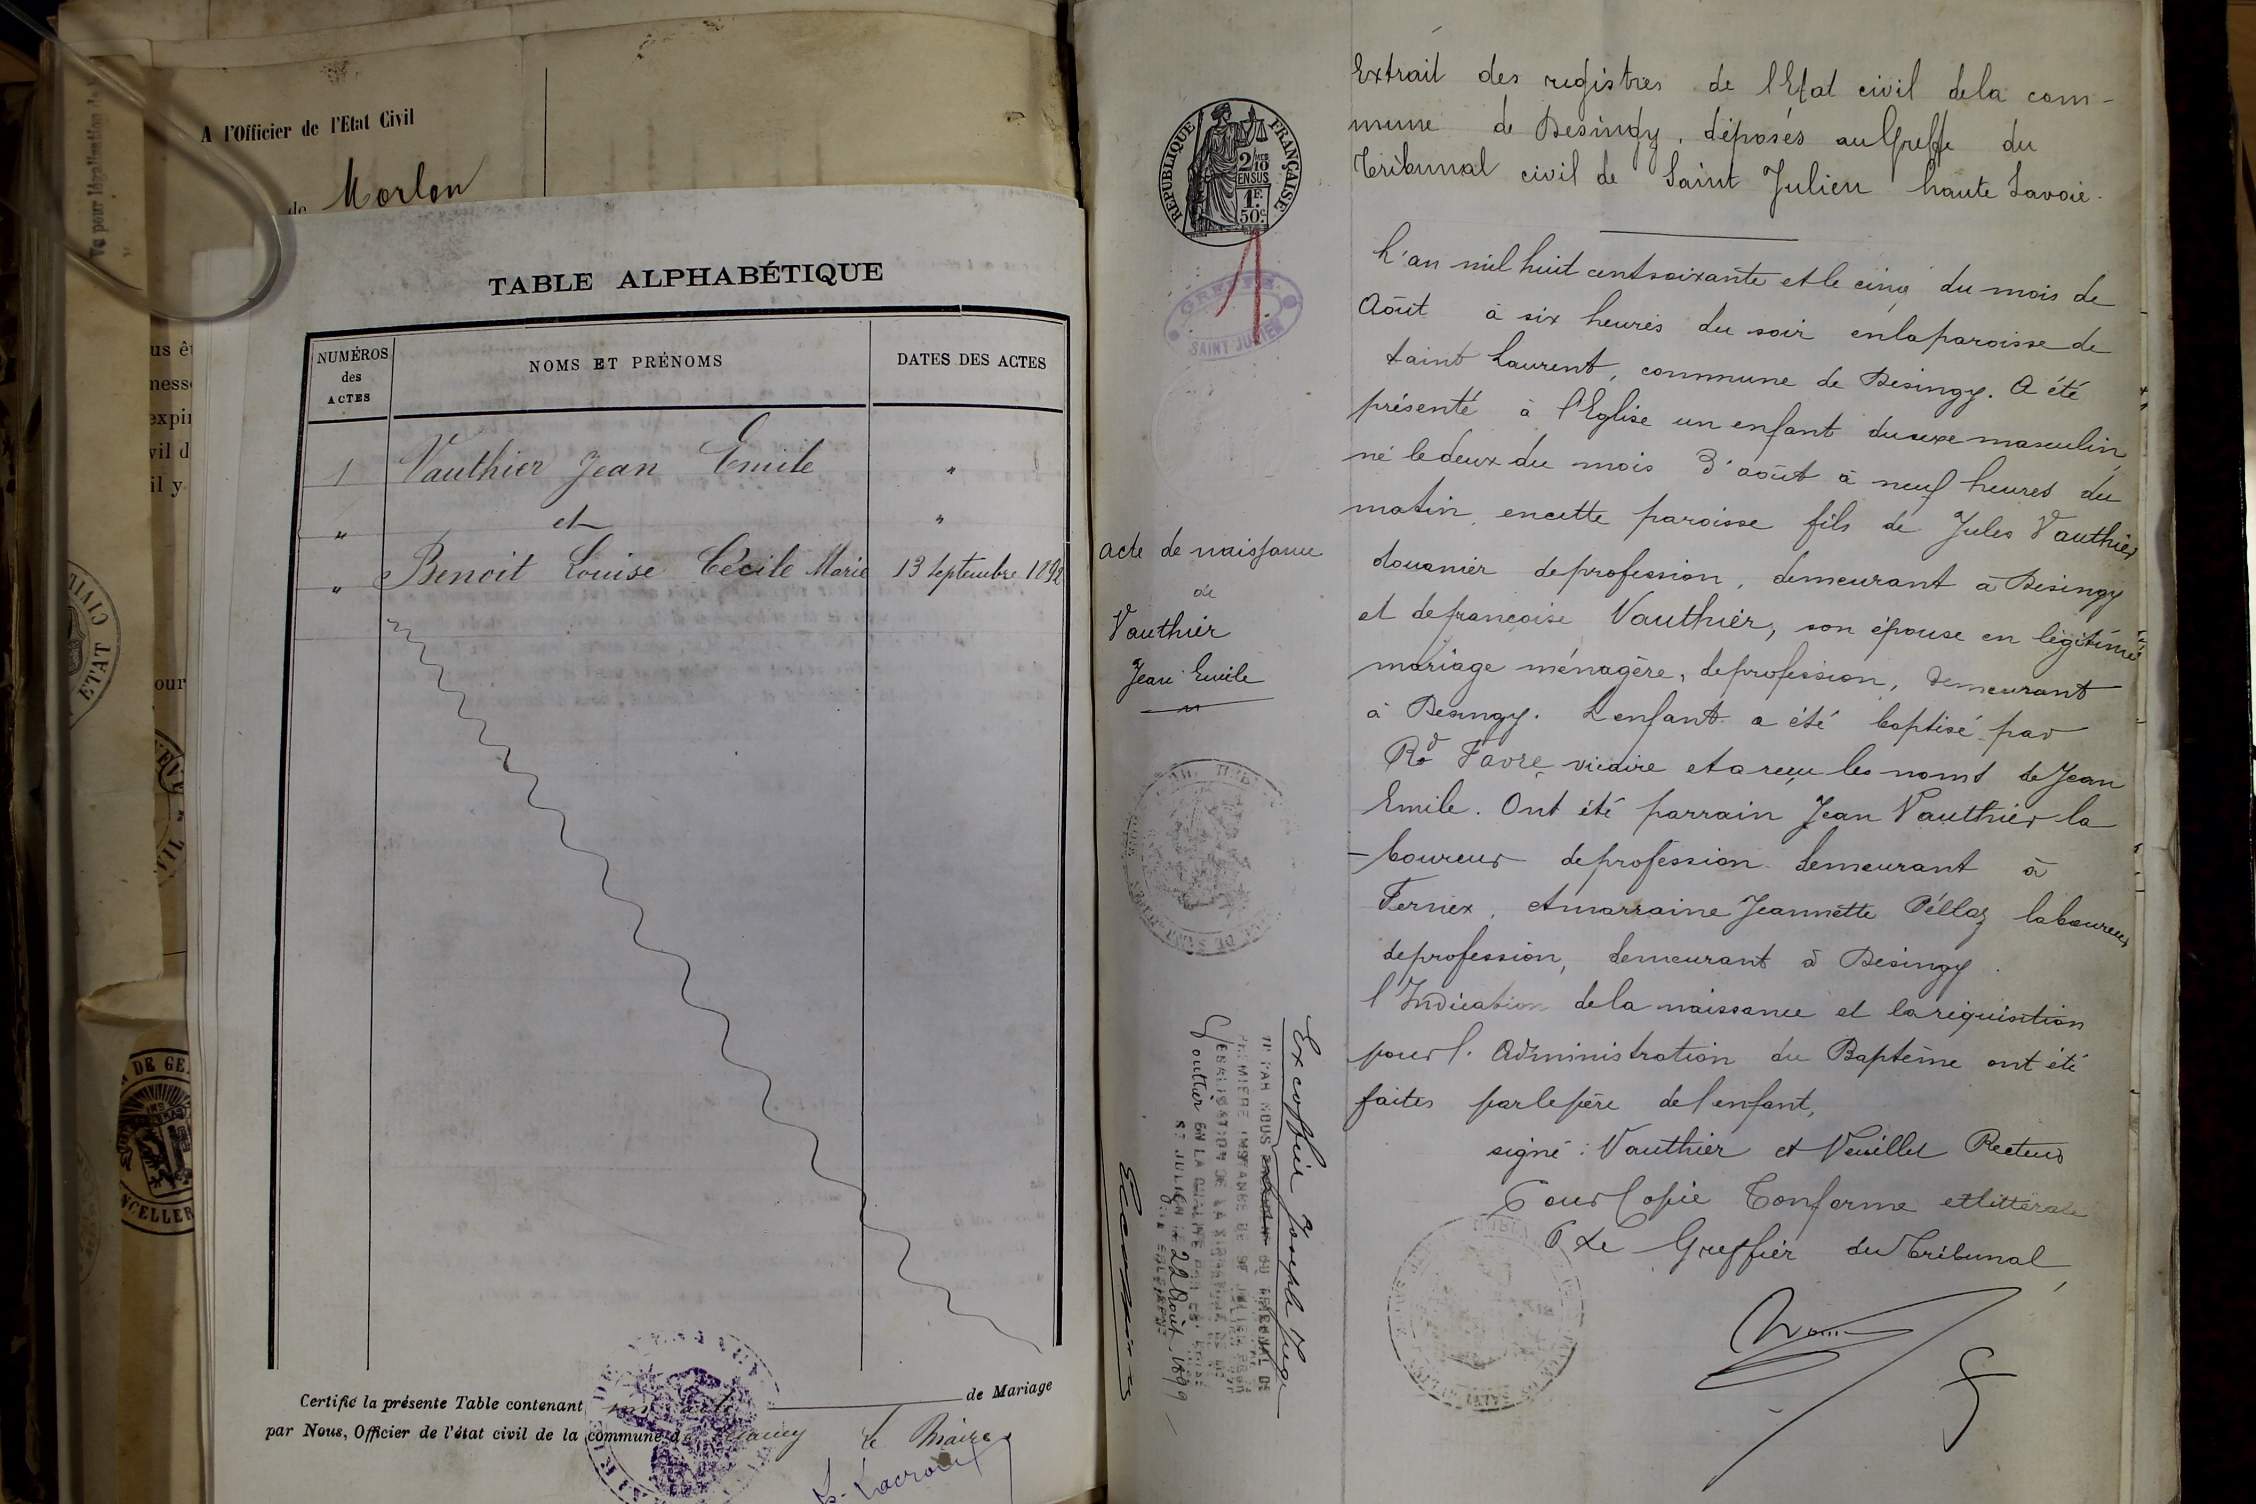 A l'Officier de l'Etat Civil
de Morlon
TABLE ALPHABÉTIQUE
NUMÉROS des ACTES
NOMS ET PRÉNOMS
DATES DES ACTES
1 Vauthier Jean Emile "
" et "
" Benoit Louise Cécile Marie 13 Septembre 1892
Certifié la présente Table contenant un acte de Mariage
par Nous, Officier de l'état civil de la commune de
le Maire
L. Lacroix
ETAT CIVIL
RÉPUBLIQUE FRANÇAISE
2/10 EN SUS
1F. 50c.
1
GREFFE
SAINT JULIEN
acte de naissance
de
Vauthier
Jean Emile
Excoffier Joseph Juge
PREMIERE INSTANCE DE ST JULIEN
22 Août
Extrait des registres de l'Etat civil dela com-
mune de Desingy, déposés au Greffe du
Tribunal civil de Saint Julien haute Savoie.
L'an mil huit cent soixante et le cinq du mois de
Août à six heures du soir en la paroisse de
Saint Laurent, commune de Desingy. A été
présenté à l'Eglise un enfant du sexe masculin,
né le deux du mois d'août à neuf heures du
matin, en cette paroisse fils de Jules Vauthier
douanier de profession, demeurant à Desingy
et de francoise Vauthier, son épouse en légitime
mariage ménagère, de profession, demeurant
à Desingy. L'enfant a été baptisé par
Rd Favre vicaire et a reçu les noms de Jean
Emile. Ont été parrain Jean Vauthier la
-boureur de profession demeurant à
Fernex, et marraine Jeannette Péllaz laboureur
de profession, demeurant à Desingy.
l'Indication de la naissance et la réquisition
pour l'Administration du Baptême ont été
faites par le père de l'enfant,
signé : Vauthier et Veuillet Recteur
Pour Copie Conforme et littérale
Le Greffier du Tribunal